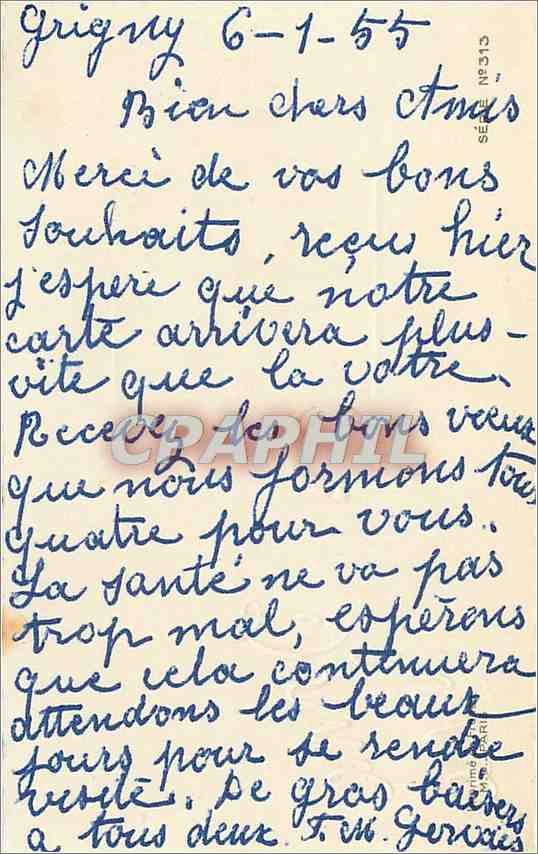 Grigny 6-1-55
Bien chers Amis
Merci de vos bons
souhaits, reçus hier
j'espère que notre
carte arrivera plus-
vite que la vôtre.
Recevez les bons vœux
que nous formons tous
quatre pour vous.
La santé ne va pas
trop mal, espérons
que cela continuera
attendons les beaux
jours pour se rendre
visite. De gros baisers
a tous deux. F. M. Gervais
SÉRIE N° 313
CPAPHIL
PARIS